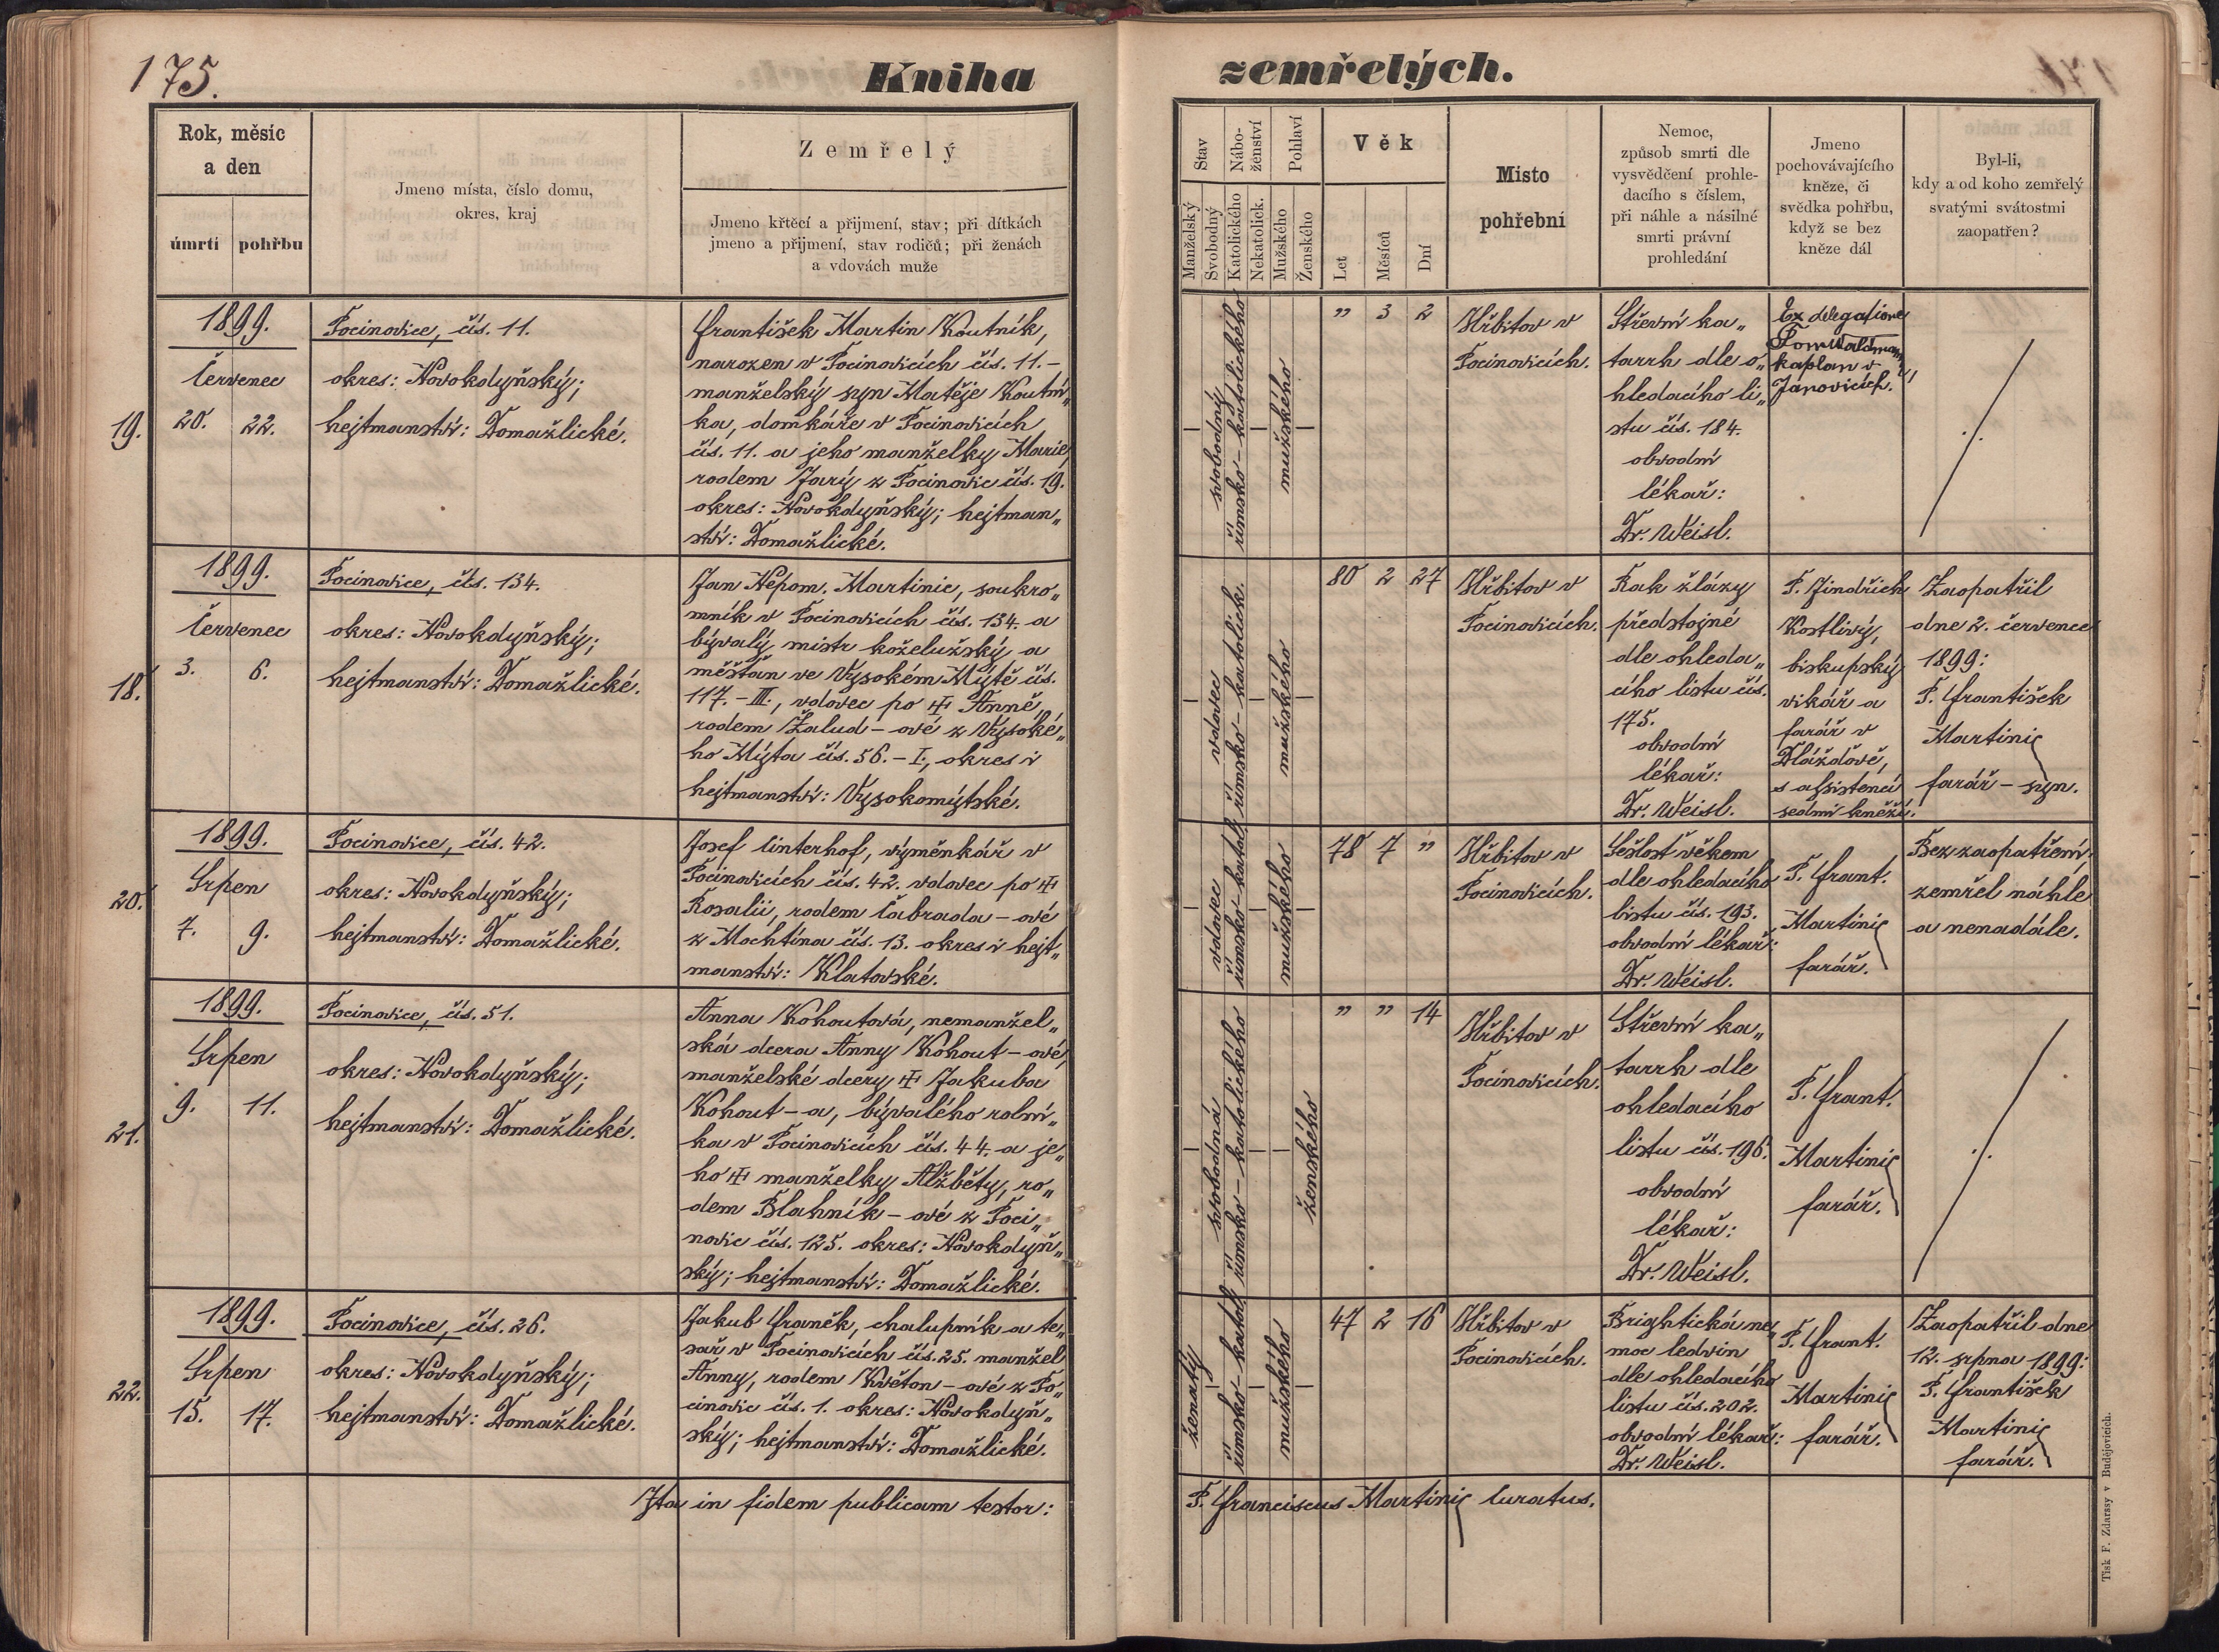 175.
Kniha
zemřelých.
Rok, měsíc
a den
úmrtí
pohřbu
Jmeno místa, číslo domu,
okres, kraj
Zemřelý
Jmeno křtěcí a přijmení, stav; při dítkách
jmeno a přijmení, stav rodičů; při ženách
a vdovách muže
Stav
Manželský
Svobodný
Nábo-
ženství
Katolického
Nekatolick.
Pohlaví
Mužského
Ženského
Věk
Let
Měsíců
Dní
Místo
pohřební
Nemoc,
způsob smrti dle
vysvědčení prohle-
dacího s číslem,
při náhle a násilné
smrti právní
prohledání
Jmeno
pochovávajícího
kněze, či
svědka pohřbu,
když se bez
kněze dál
Byl-li,
kdy a od koho zemřelý
svatými svátostmi
zaopatřen?
19.
1899.
Červenec
20. 22.
Pocinovice, čís. 11.
okres: Novokdyňský;
hejtmanství: Domažlické.
František Martin Koutník,
narozen v Pocinovicích čís. 11. –
manželský syn Matěje Koutní„
ka, domkáře v Pocinovicích
čís. 11. a jeho manželky Marie,
rodem Jarý z Pocinovic čís. 19.
okres: Novokdyňský; hejtman„
ství: Domažlické.
svobodný
římsko – katolického
mužského
„ 3 2
Hřbitov v
Pocinovicích.
Střevní ka„
tarrh dle o„
hledacího li„
stu čís. 184.
obvodní
lékař:
Dr. Weisl.
Ex delegatione
kaplan v
Janovicích.
./.
18.
1899.
Červenec
3. 6.
Pocinovice, čís. 134.
okres: Novokdyňský;
hejtmanství: Domažlické.
Jan Nepom. Martinic, soukro„
mník v Pocinovicích čís. 134. a
bývalý mistr koželužský a
měšťan ve Vysokém Mýtě čís.
117. – III., vdovec po ✠ Anně,
rodem Žalud – ové z Vysoké„
ho Mýta čís. 56. – I., okres i
hejtmanství: Vysokomýtské.
vdovec
římsko – katolick.
mužského
80 2 27
Hřbitov v
Pocinovicích.
Rak žlázy
předstojné
dle ohleda„
cího listu čís.
175.
obvodní
lékař:
Dr. Weisl.
P. Jindřich
Kostlivý,
biskupský
vikář a
farář v
Dlážďově,
s assistencí
sedmi kněží.
Zaopatřil
dne 2. července
1899:
P. František
Martinic
farář – syn.
20.
1899.
Srpen
7. 9.
Pocinovice, čís. 42.
okres: Novokdyňský;
hejtmanství: Domažlické.
Josef Cinterhof, výměnkář v
Pocinovicích čís. 42. vdovec po ✠
Rosalii, rodem Čabrada – ové
z Mochtína čís. 13. okres i hejt„
manství: Klatovské.
vdovec
římsko – katol.
mužského
78 7 „
Hřbitov v
Pocinovicích.
Sešlost věkem
dle ohledacího
listu čís. 193.
obvodní lékař:
Dr. Weisl.
P. Frant.
Martinic
farář.
Bez zaopatření;
zemřel náhle
a nenadále.
21.
1899.
Srpen
9. 11.
Pocinovice, čís. 51.
okres: Novokdyňský;
hejtmanství: Domažlické.
Anna Kohoutová, nemanžel„
ská dcera Anny Kohout – ové,
manželské dcery ✠ Jakuba
Kohout – a, bývalého rolní„
ka v Pocinovicích čís. 44. a je„
ho ✠ manželky Alžběty, ro„
dem Blahník – ové z Poci„
novic čís. 125. okres: Novokdyň„
ský; hejtmanství: Domažlické.
svobodná
římsko – katolického
ženského
„ „ 14
Hřbitov v
Pocinovicích.
Střevní ka„
tarrh dle
ohledacího
listu čís. 196.
obvodní
lékař:
Dr. Weisl.
P. Frant.
Martinic
farář.
./.
22.
1899.
Srpen
15. 17.
Pocinovice, čís. 26.
okres: Novokdyňský;
hejtmanství: Domažlické.
Jakub Franěk, chalupník a te„
sař v Pocinovicích čís. 25. manžel
Anny, rodem Květon – ové z Po„
cinovic čís. 1. okres: Novokdyň„
ský; hejtmanství: Domažlické.
ženatý
římsko – katol.
mužského
47 2 16
Hřbitov v
Pocinovicích.
Brightická ne„
moc ledvin
dle ohledacího
listu čís. 202.
obvodní lékař:
Dr. Weisl.
P. Frant.
Martinic
farář.
Zaopatřil dne
12. srpna 1899:
P. František
Martinic
farář.
Ita in fidem publicam testor:
P. Franciscus Martinic Curatus.
Tisk F. Zdarssy v Budějovicích.